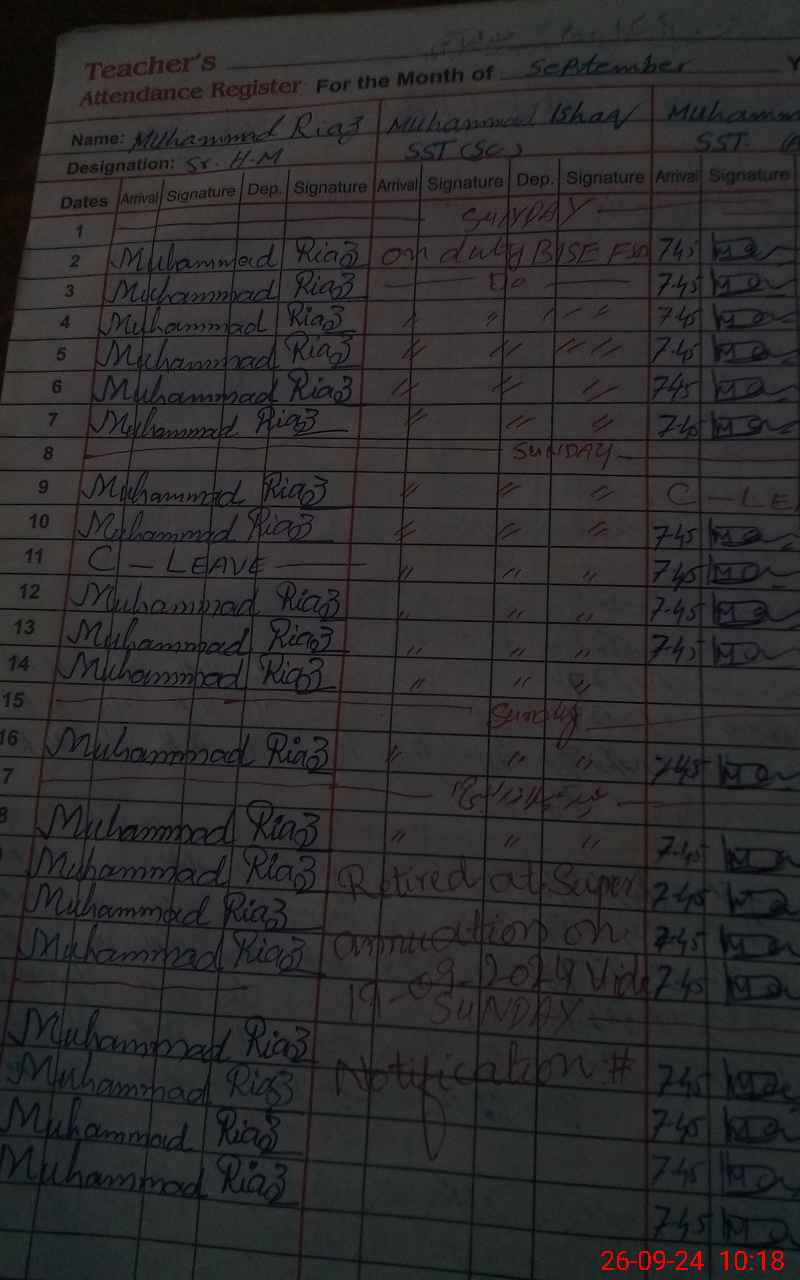 Teacher's
Attendance Register For the Month of September Y
Name: Muhammad Riaz Muhammad Ishaq Muhamm
Designation: Sr. H.M SST (SC.) SST.
Dates Arrival Signature Dep. Signature Arrival Signature Dep. Signature Arrival Signature
1 SUNDAY
2 Muhammad Riaz on duty BISE FSD 7.45
3 Muhammad Riaz Do 7.45
4 Muhammad Riaz " " " " 7.45
5 Muhammad Riaz " " " " 7.45
6 Muhammad Riaz " " " 7.45
7 Muhammad Riaz " " " 7.45
8 SUNDAY
9 Muhammad Riaz " " " C - LEA
10 Muhammad Riaz " " " 7.45
11 C - LEAVE " " " 7.45
12 Muhammad Riaz " " " 7.45
13 Muhammad Riaz " " " 7.45
14 Muhammad Riaz " " "
15 Sunday
16 Muhammad Riaz " " " 7.45
7
8 Muhammad Riaz " " " 7.45
Muhammad Riaz Retired at Super 7.45
Muhammad Riaz annuation on 7.45
Muhammad Riaz 19-09-2024 Vide 7.45
SUNDAY
Muhammad Riaz Notification # 7.45
Muhammad Riaz 7.45
Muhammad Riaz 7.45
Muhammad Riaz 7.45
26-09-24 10:18